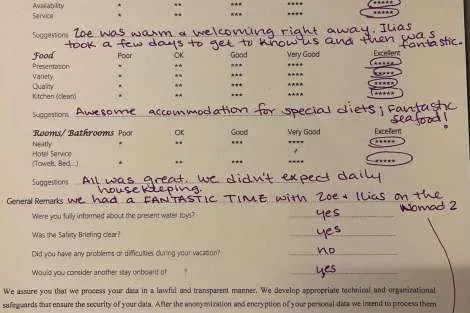 Availability * ** *** **** *****
Service * ** *** **** *****
Suggestions Zoe was warm & welcoming right away. Ilias
took a few days to get to know us and then was
fantastic.
Food Poor OK Good Very Good Excellent
Presentation * ** *** **** *****
Variety * ** *** **** *****
Quality * ** *** **** *****
Kitchen (clean) * ** *** **** *****
Suggestions Awesome accommodation for special diets; Fantastic
seafood!
Rooms/Bathrooms Poor OK Good Very Good Excellent
Neatly * ** *** **** *****
Hotel Service
(Towels, Bed,..) * ** *** **** *****
Suggestions All was great. We didn't expect daily
housekeeping.
General Remarks We had a FANTASTIC TIME with Zoe + Ilias on the
Nomad 2
Were you fully informed about the present water toys? yes
Was the Safety Briefing clear? yes
Did you have any problems or difficulties during your vacation? no
Would you consider another stay onboard of ? yes
We assure you that we process your data in a lawful and transparent manner. We develop appropriate technical and organizational
safeguards that ensure the security of your data. After the anonymization and encryption of your personal data we intend to process them